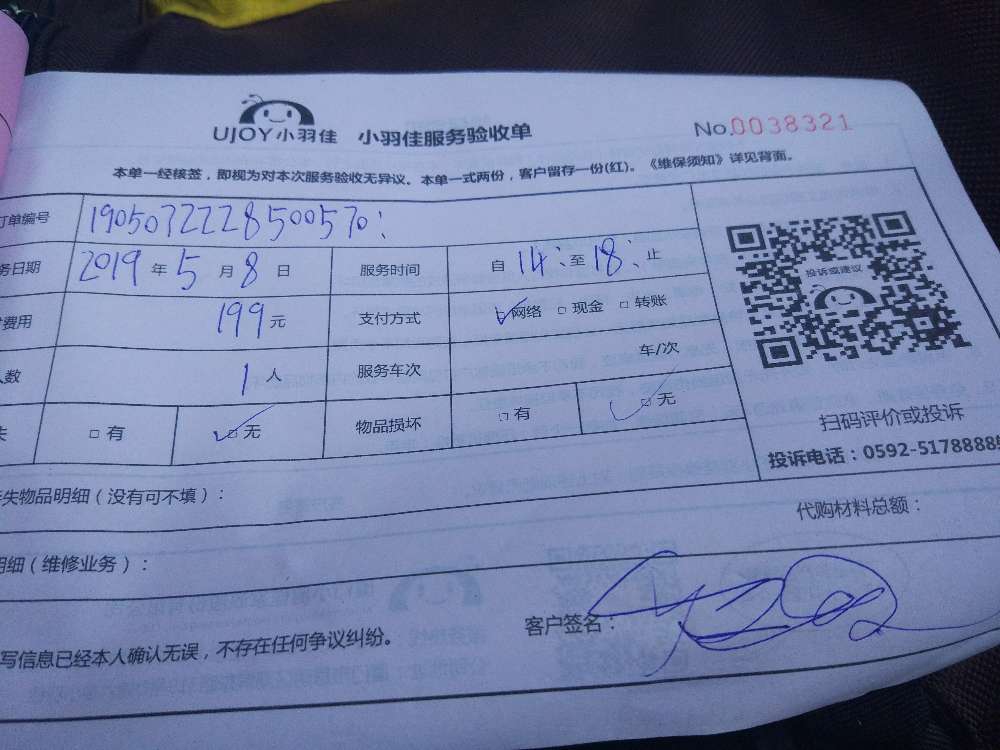 UJOY小羽佳 小羽佳服务验收单 No.0038321
本单一经核签，即视为对本次服务验收无异议。本单一式两份，客户留存一份(红)。《维保须知》详见背面。
订单编号 1905072228500570
务日期 2019年5月8日 服务时间 自14:至18:止
费用 199元 支付方式 网络 □现金 □转账
人数 1人 服务车次 车/次
失 □有 □无 物品损坏 □有 □无
投诉或建议
扫码评价或投诉
投诉电话：0592-5178888
失物品明细（没有可不填）：
代购材料总额：
明细（维修业务）：
写信息已经本人确认无误，不存在任何争议纠纷。 客户签名：